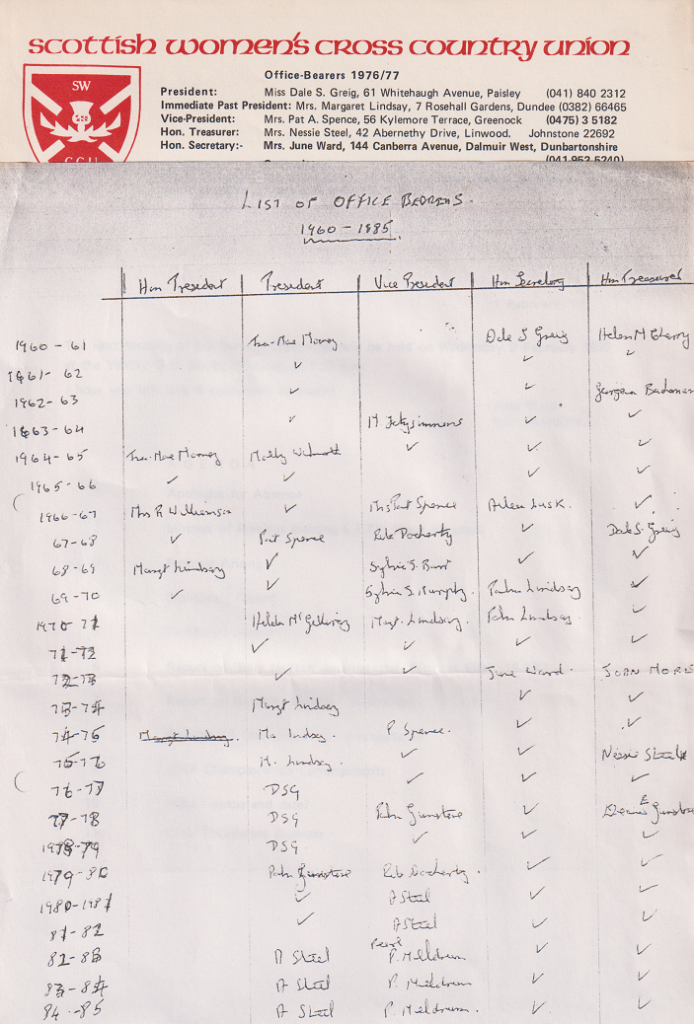 scottish women's cross country union
SW
CCU
Office-Bearers 1976/77
President: Miss Dale S. Greig, 61 Whitehaugh Avenue, Paisley (041) 840 2312
Immediate Past President: Mrs. Margaret Lindsay, 7 Rosehall Gardens, Dundee (0382) 66465
Vice-President: Mrs. Pat A. Spence, 56 Kylemore Terrace, Greenock (0475) 3 5182
Hon. Treasurer: Mrs. Nessie Steel, 42 Abernethy Drive, Linwood. Johnstone 22692
Hon. Secretary:- Mrs. June Ward, 144 Canberra Avenue, Dalmuir West, Dunbartonshire
(041 952 5240)
LIST OF OFFICE BEARERS.
1960 - 1985.
Hon President President Vice President Hon Secretary Hon Treasurer
1960 - 61 Dale S Greig Helen M Cherry
1961 - 62 ✓ ✓ ✓
1962 - 63 ✓ ✓ Georgena
1963 - 64 ✓ M ✓ ✓
1964 - 65 Molly ✓ ✓ ✓
1965 - 66 ✓ ✓ ✓ ✓
1966 - 67 Mrs R Williamson ✓ Mrs Pat Spence Aileen Lusk. ✓
67 - 68 ✓ Pat Spence Docherty ✓ Dale S. Greig
68 - 69 Margt Lindsay ✓ Sylvia S. ✓ ✓
69 - 70 ✓ Sylvia S. Lindsay ✓
1970 71 Helen Margt. Lindsay. Lindsay. ✓
71 - 72 ✓ ✓ ✓ ✓
72 - 73 ✓ ✓ June Ward. JOAN
73 - 74 Margt Lindsay ✓ ✓
74 - 75 Margt Lindsay. Lindsay. P Spence. ✓ ✓
75 - 76 M. Lindsay. ✓ ✓ Nessie Steel
76 - 77 DSG ✓ ✓ ✓
77 - 78 DSG ✓
1978 - 79 DSG ✓ ✓ ✓
1979 - 80 Docherty. ✓ ✓
1980 - 1981 ✓ A Steel ✓ ✓
81 - 82 ✓ A Steel ✓ ✓
82 - 83 A Steel Pearl P. Meldrum ✓ ✓
83 - 84 A Steel P. Meldrum ✓ ✓
84. - 85 A Steel P. Meldrum. ✓ ✓